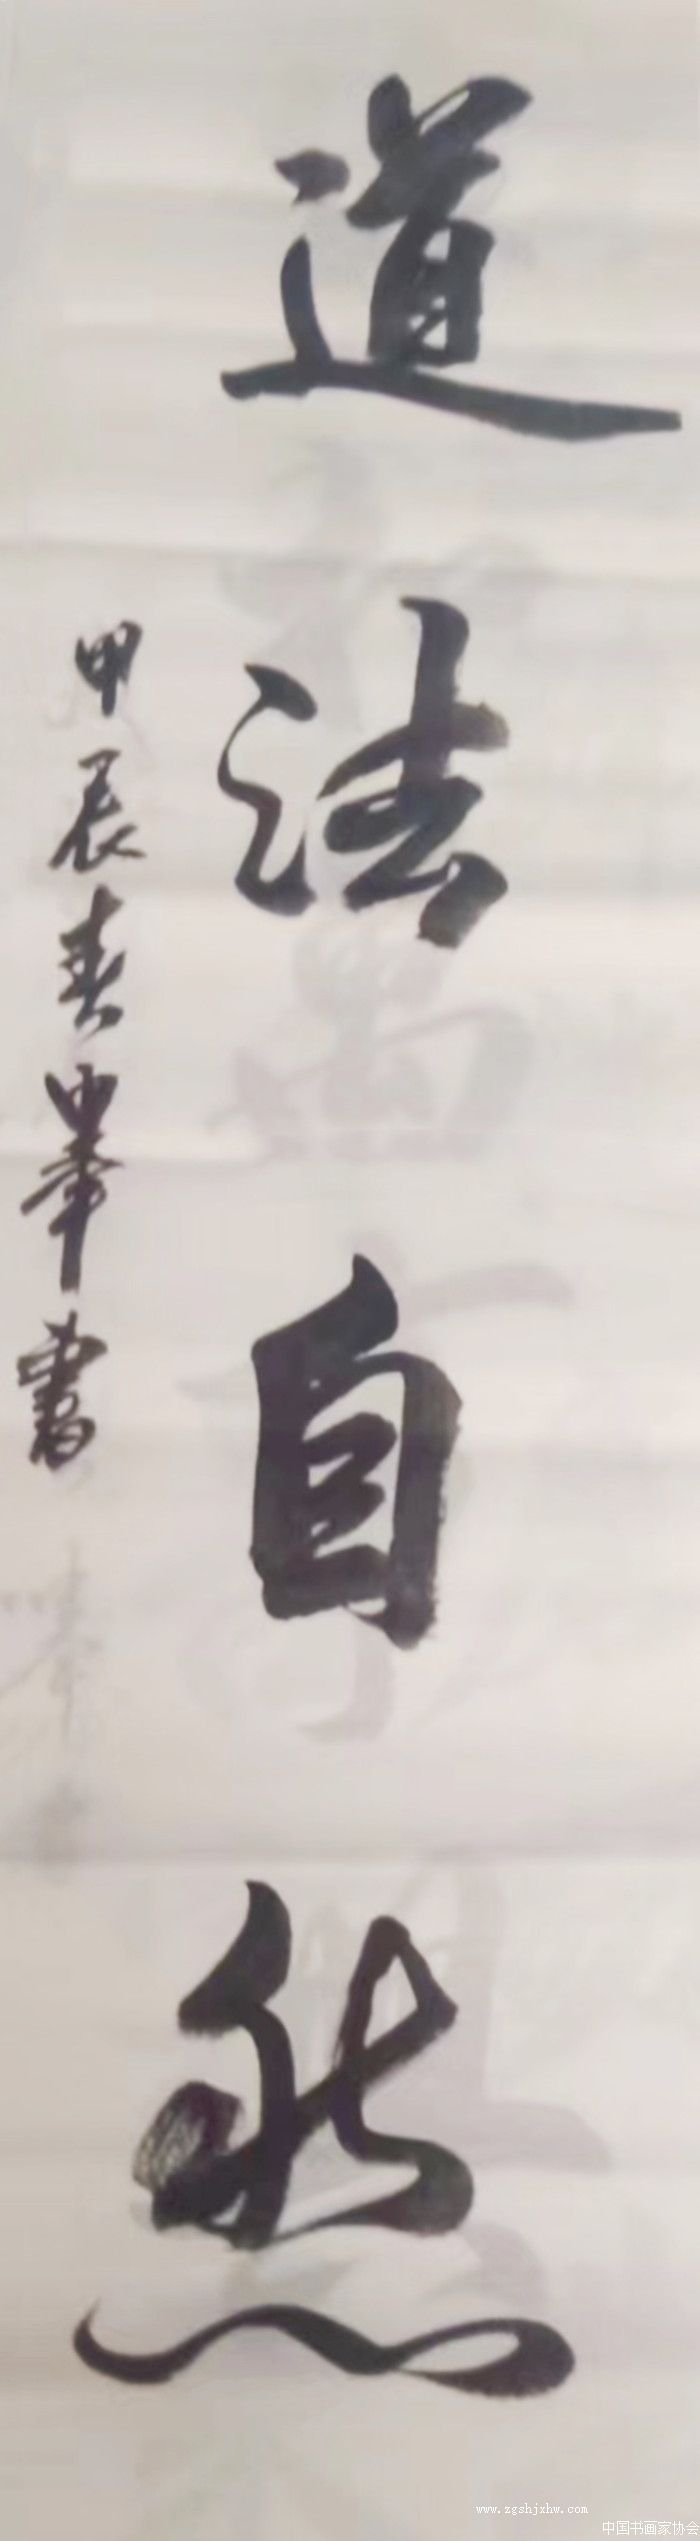 道法自然
甲辰春山峯書
www.zgshjxhw.com
中国书画家协会